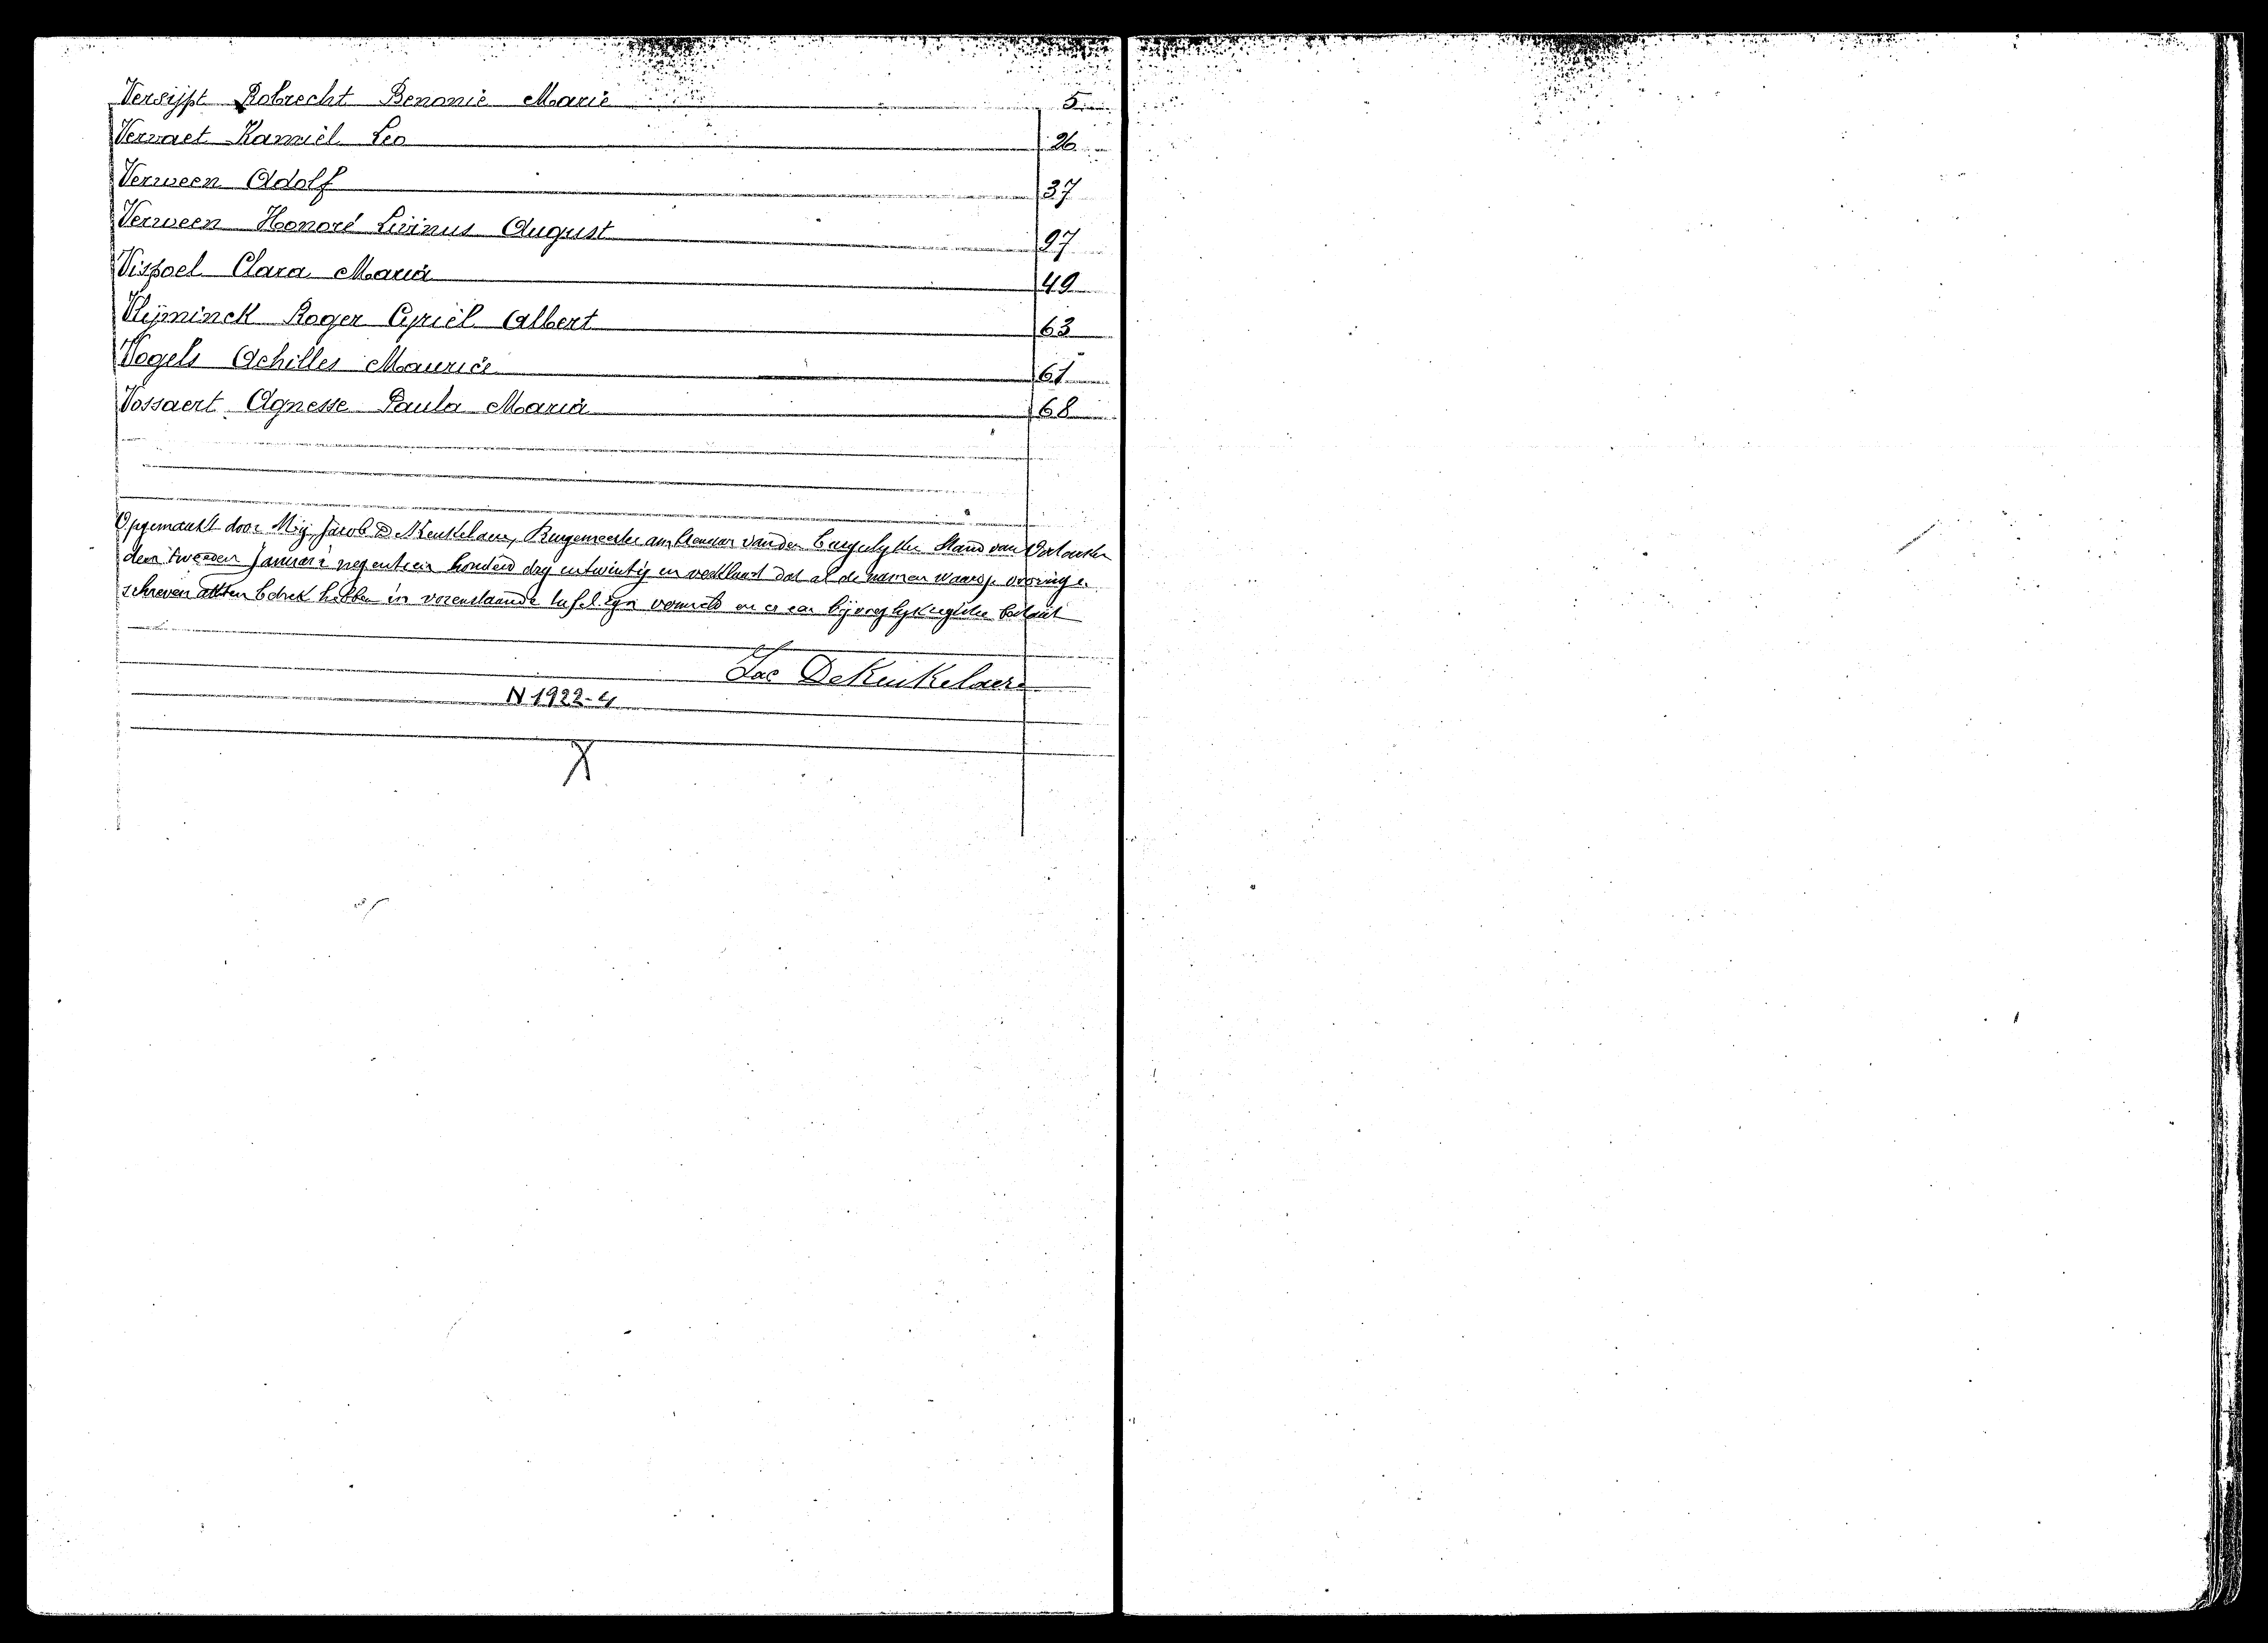 Versijpt Robrecht Benonie Marie 5
Vervaet Kamiel Leo 26
Verween Adolf 37
Verween Honoré Livinus August 97
Vispoel Clara Maria 49
Vlijminck Roger Cyriel Albert 63
Vogels Achilles Maurice 61
Vossaert Agnesse Paula Maria 68
Opgemaakt door Mij, Jacob De Keukelaere, Burgemeester ambtenaar van den burgerlyken Stand van
den tweeden Januari negentien honderd dry entwintig en verklaard dat al de namen waarop
schreven akten betrek hebben in voorenstaande tafel zyn vermeld en er een
Jac DeKeukelaere
N 1922-4
X